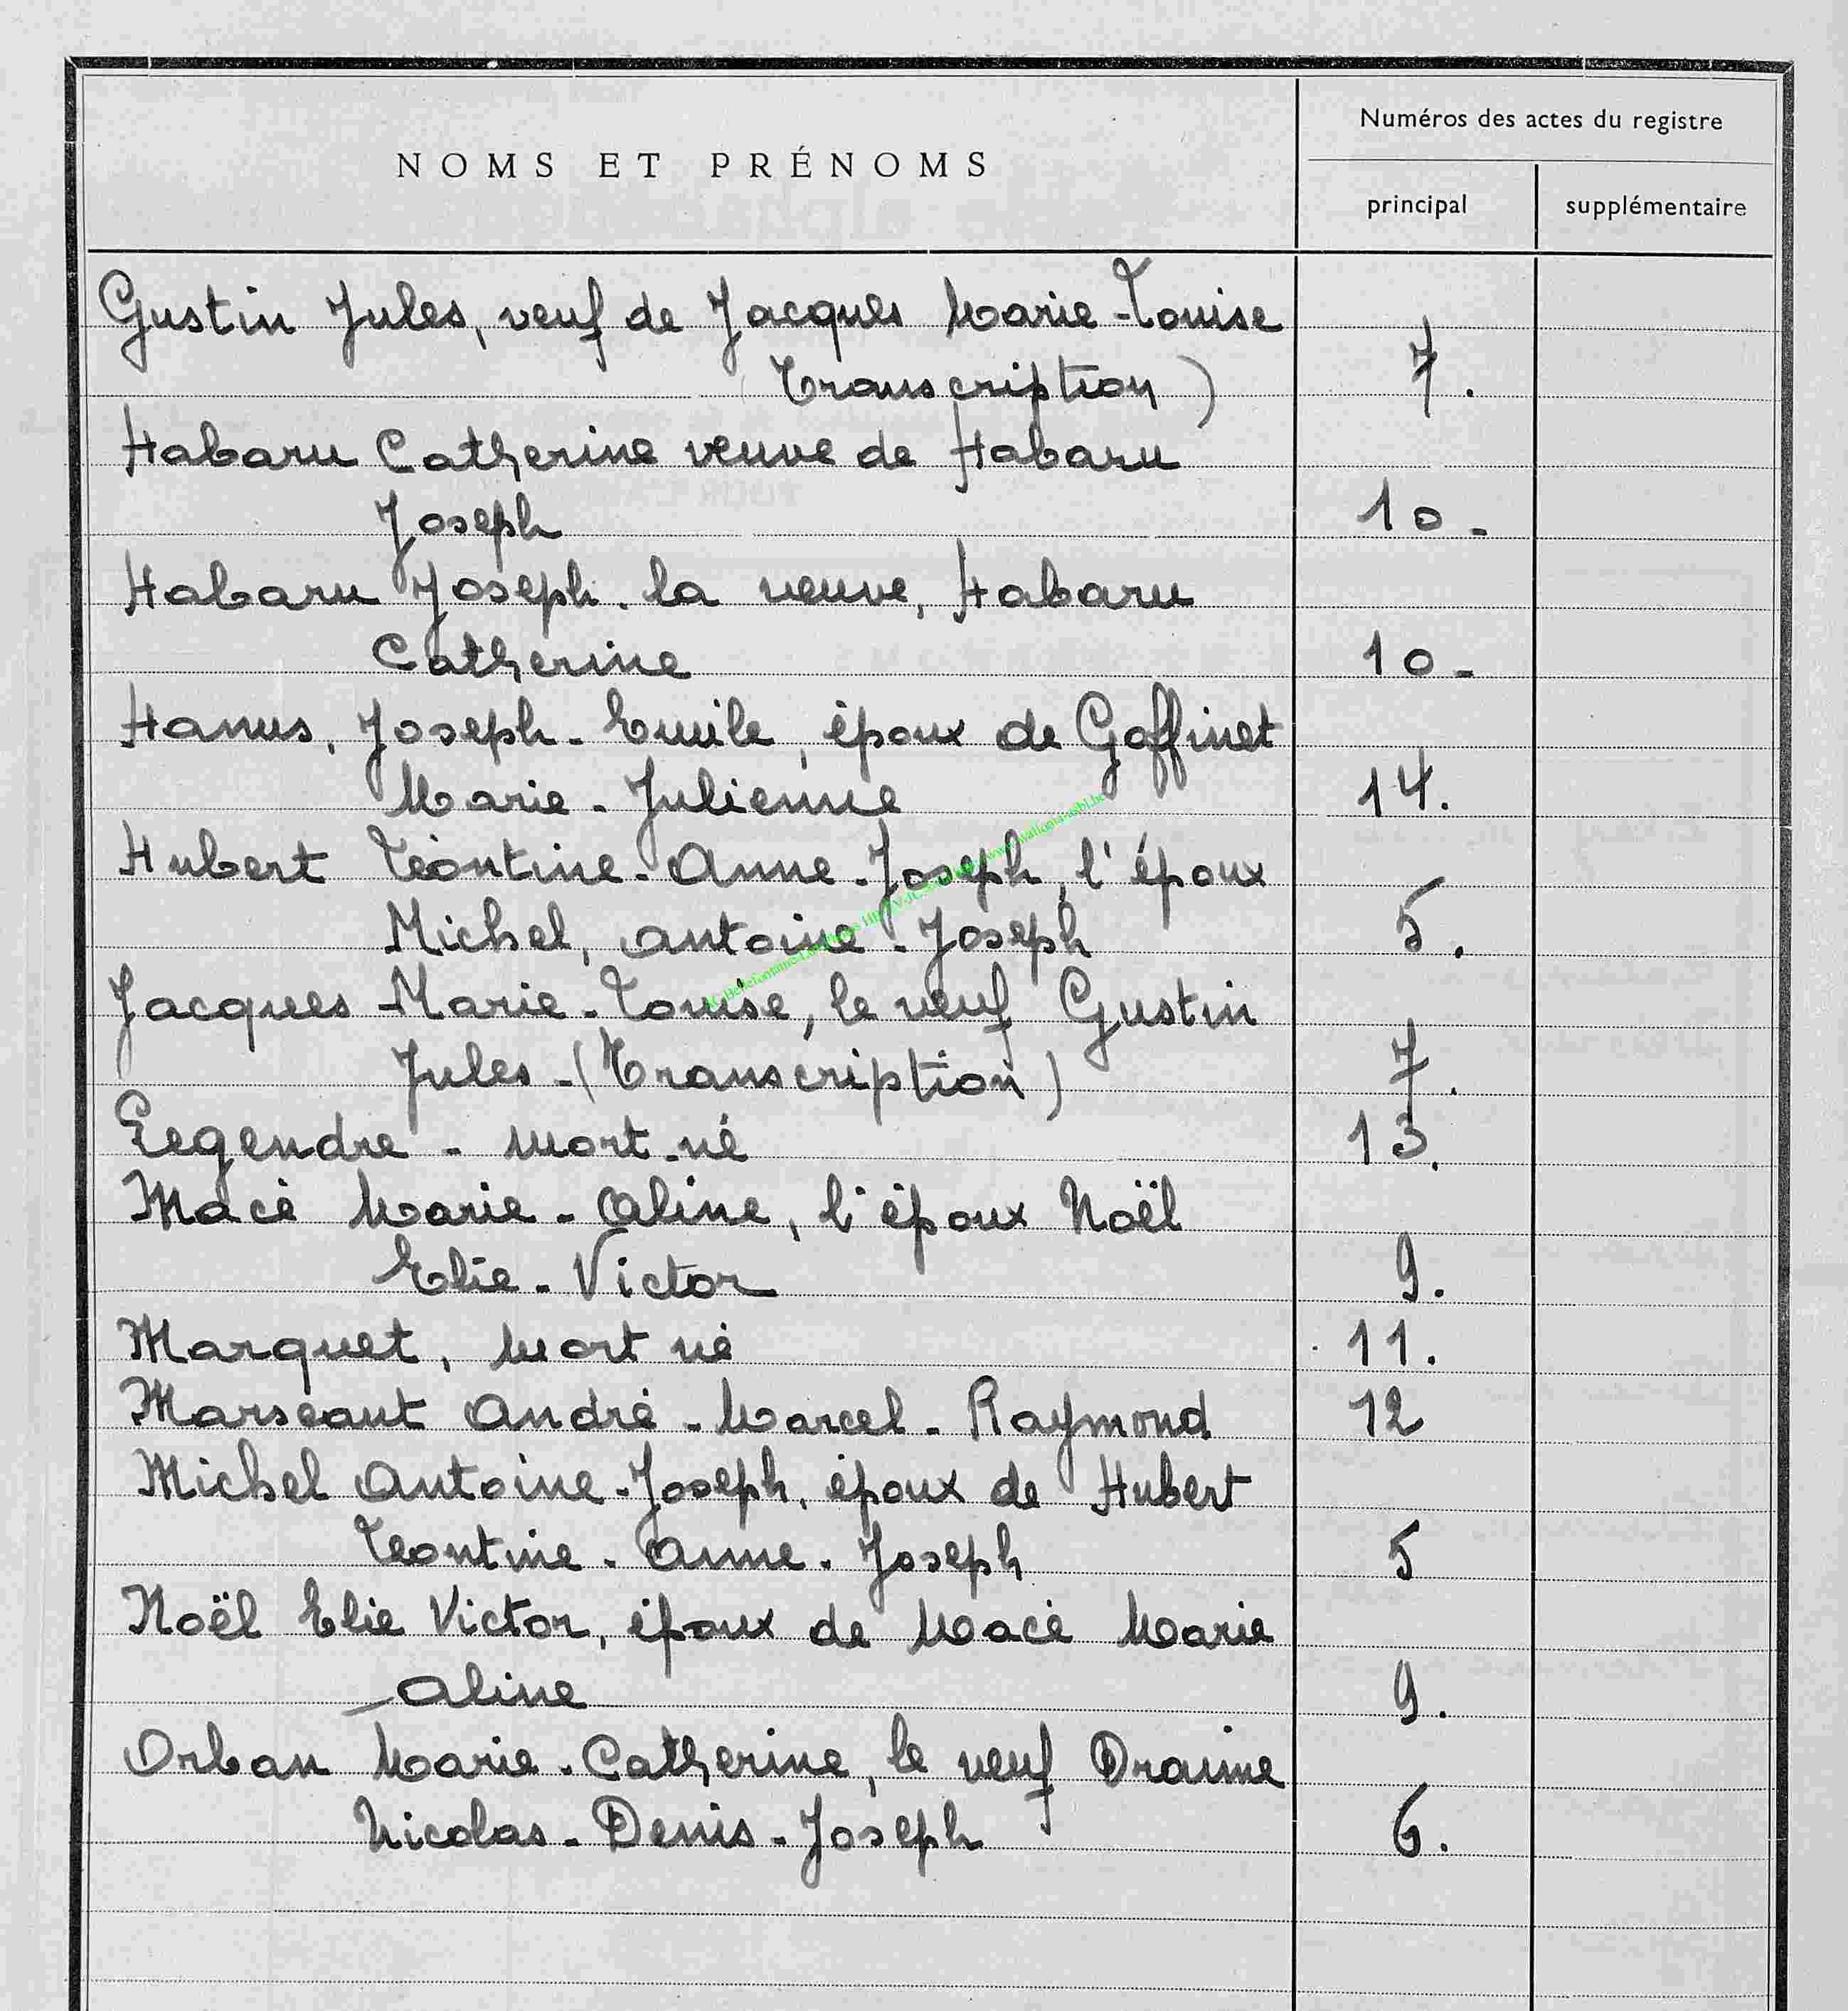 NOMS ET PRÉNOMS
Numéros des actes du registre
principal
supplémentaire
Gustin Jules, veuf de Jacques Marie-Louise
(Transcription) 7.
Habaru Catherine veuve de Habaru
Joseph 10-
Habaru Joseph. la veuve, Habaru
Catherine 10-
Hanus, Joseph-Emile, époux de Goffinet
Marie-Julienne 14.
Hubert Léontine-Anne-Joseph, l'époux
Michel, Antoine-Joseph 5.
Jacques Marie-Louise, le veuf Gustin
Jules-(Transcription) 7.
Legendre - mort-né 13.
Macé Marie-Aline, l'époux Noël
Elie-Victor 9.
Marquet, mort né 11.
Marseaut André-Marcel-Raymond 12
Michel Antoine-Joseph, époux de Hubert
Léontine-Anne-Joseph 5
Noël Elie Victor, époux de Macé Marie
Aline 9.
Orban Marie-Catherine, le veuf Draime
Nicolas-Denis-Joseph 6.